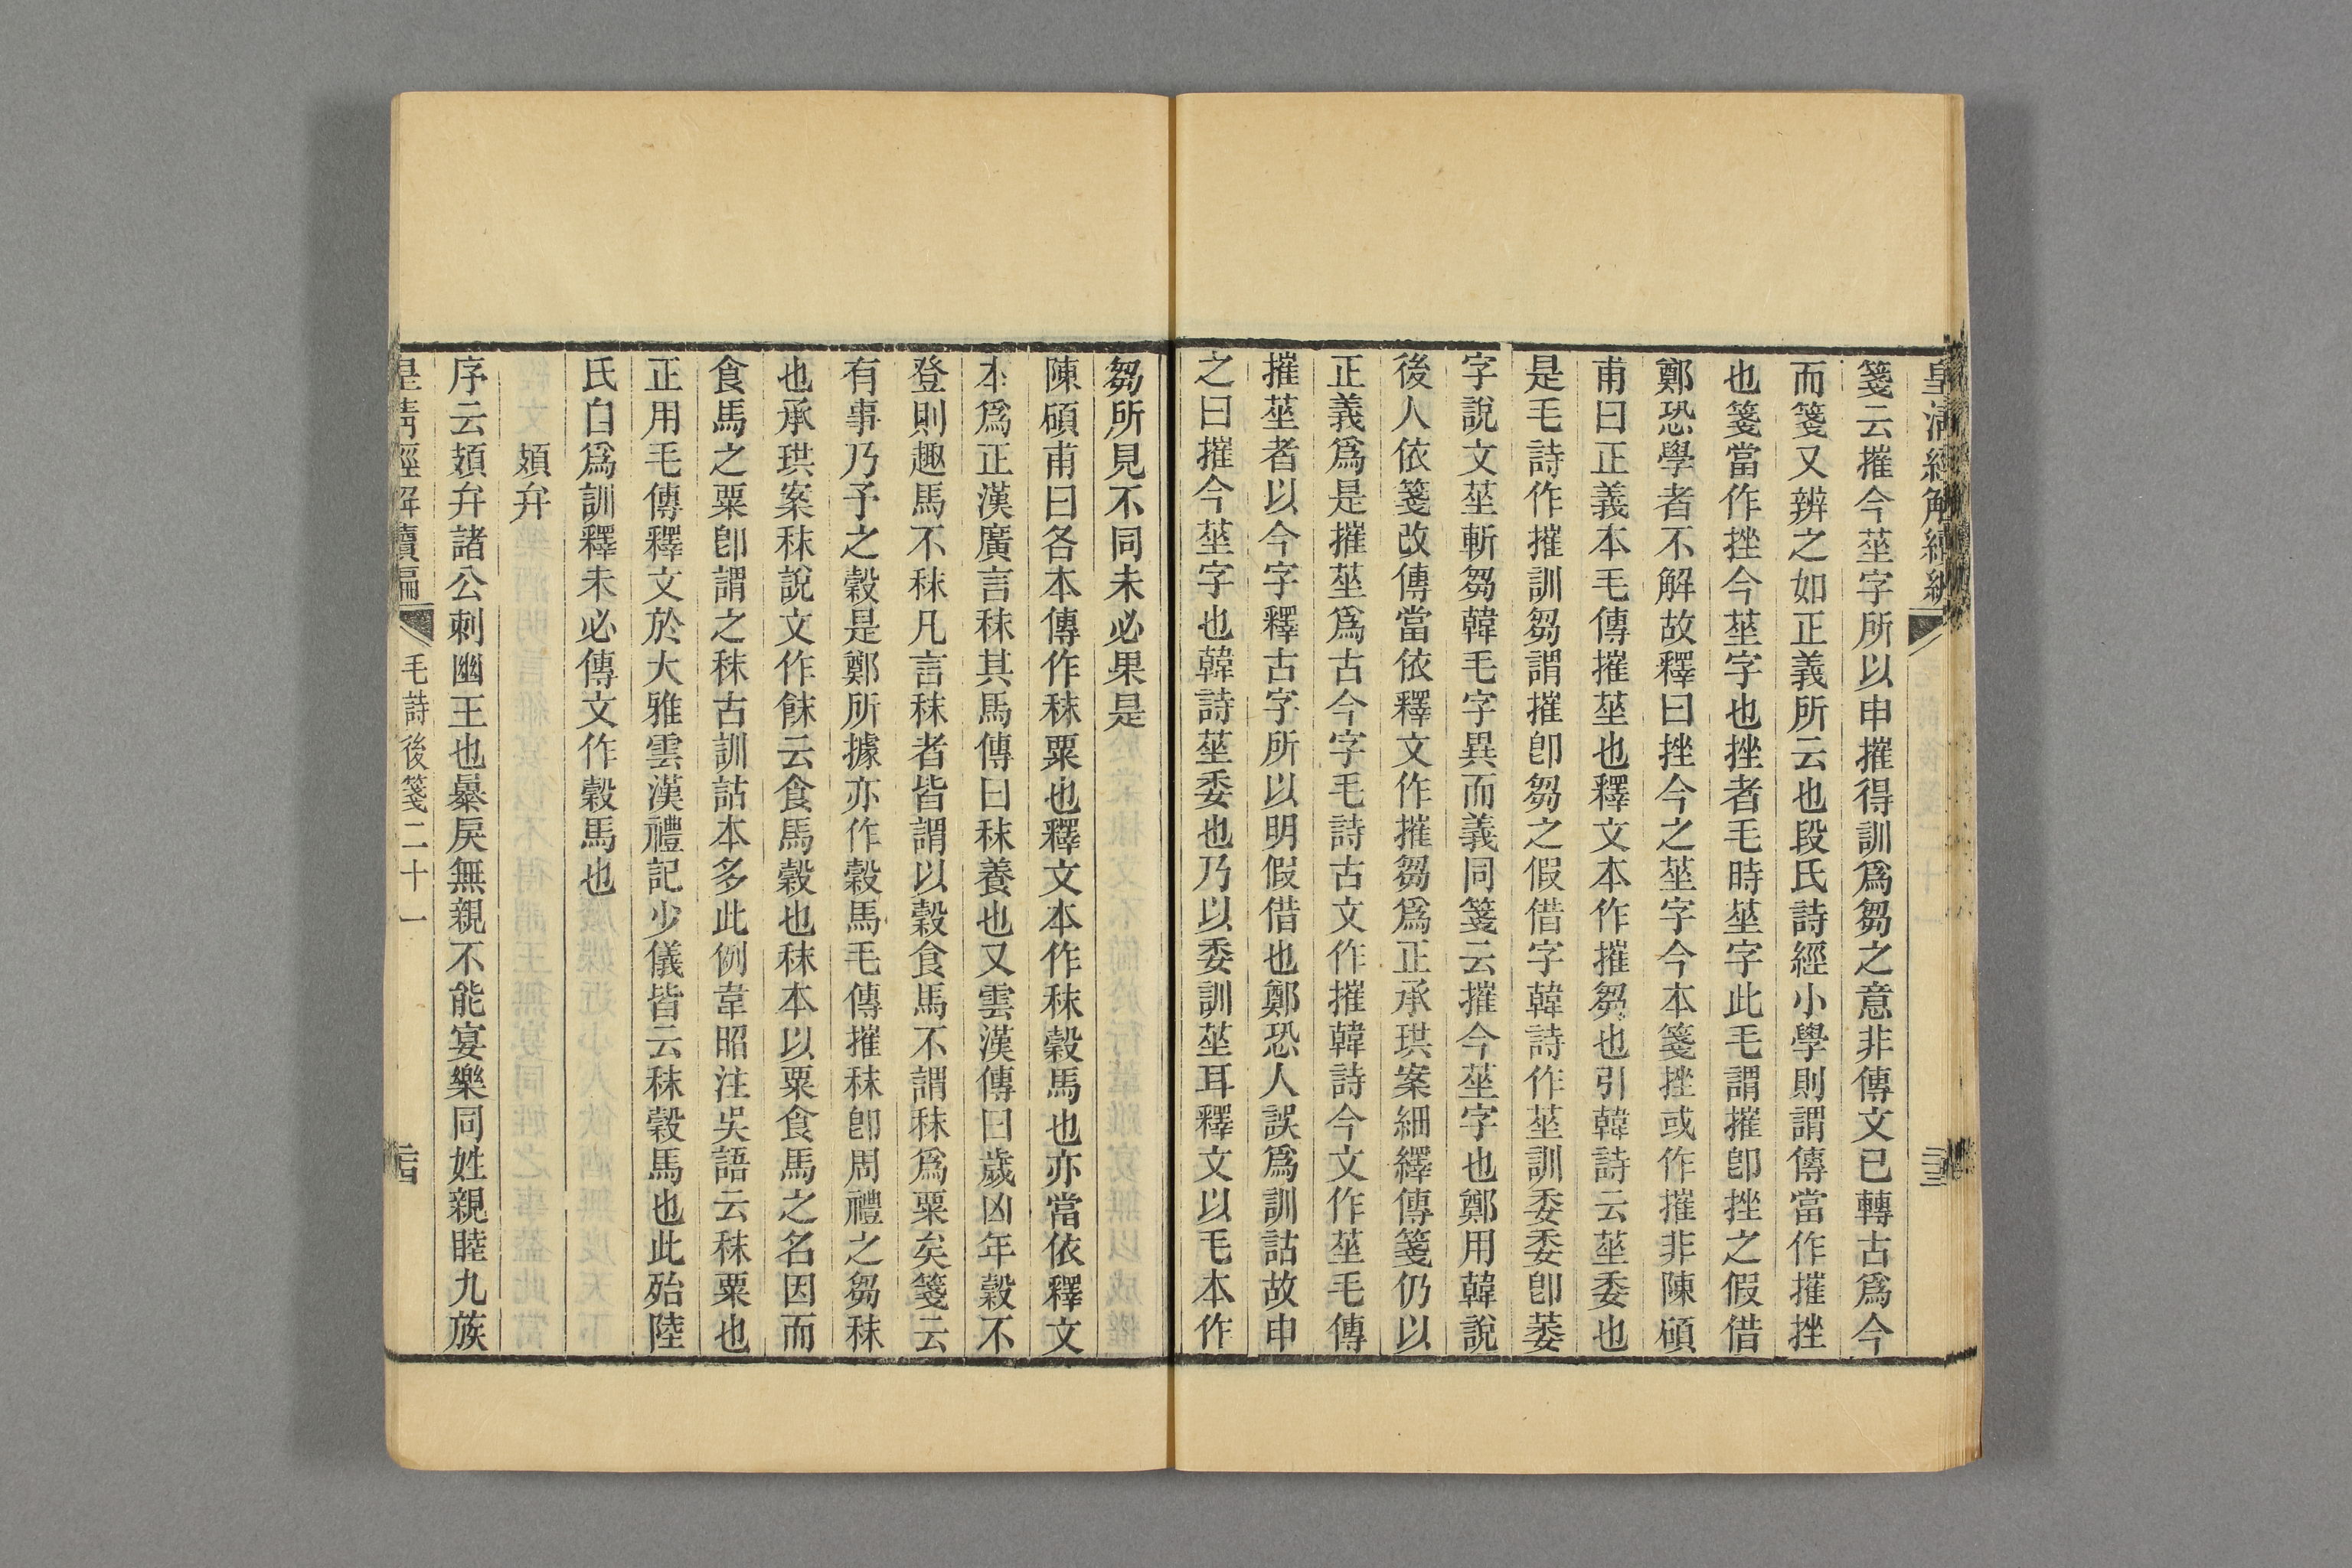 皇清經解續編
箋云摧今莝字所以申摧得訓爲芻之意非傳文已轉古爲今
而箋又辨之如正義所云也段氏詩經小學則謂傳當作摧挫
也箋當作挫今莝字也挫者毛時莝字此毛謂摧卽挫之假借
鄭恐學者不解故釋曰挫今之莝字今本箋挫或作摧非陳碩
甫曰正義本毛傳摧莝也釋文本作摧芻也引韓詩云莝委也
是毛詩作摧訓芻謂摧卽芻之假借字韓詩作莝訓委委卽萎
字說文莝斬芻韓毛字異而義同箋云摧今莝字也鄭用韓說
後人依箋改傳當依釋文作摧芻爲正承珙案細繹傳箋仍以
正義爲是摧莝爲古今字毛詩古文作摧韓詩今文作莝毛傳
摧莝者以今字釋古字所以明假借也鄭恐人誤爲訓詁故申
之曰摧今莝字也韓詩莝委也乃以委訓莝耳釋文以毛本作
芻所見不同未必果是
陳碩甫曰各本傳作秣粟也釋文本作秣穀馬也亦當依釋文
本爲正漢廣言秣其馬傳曰秣養也又雲漢傳曰歲凶年穀不
登則趣馬不秣凡言秣者皆謂以穀食馬不謂秣爲粟矣箋云
有事乃予之穀是鄭所據亦作穀馬毛傳摧秣卽周禮之芻秣
也承珙案秣說文作餗云食馬穀也秣本以粟食馬之名因而
食馬之粟卽謂之秣古訓詁本多此例韋昭注吳語云秣粟也
正用毛傳釋文於大雅雲漢禮記少儀皆云秣穀馬也此殆陸
氏自爲訓釋未必傳文作穀馬也
頍弁
序云頍弁諸公刺幽王也暴戾無親不能宴樂同姓親睦九族
皇清經解續編
毛詩後箋二十一